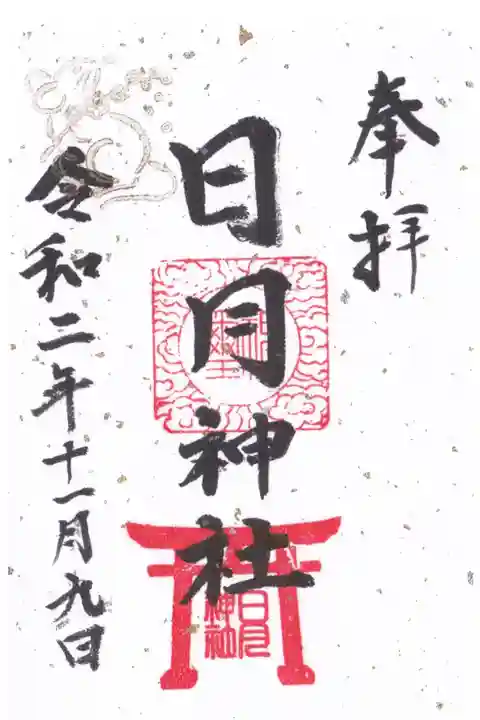 奉拝
日月神社
神璽
日月
神社
令和二年十一月九日